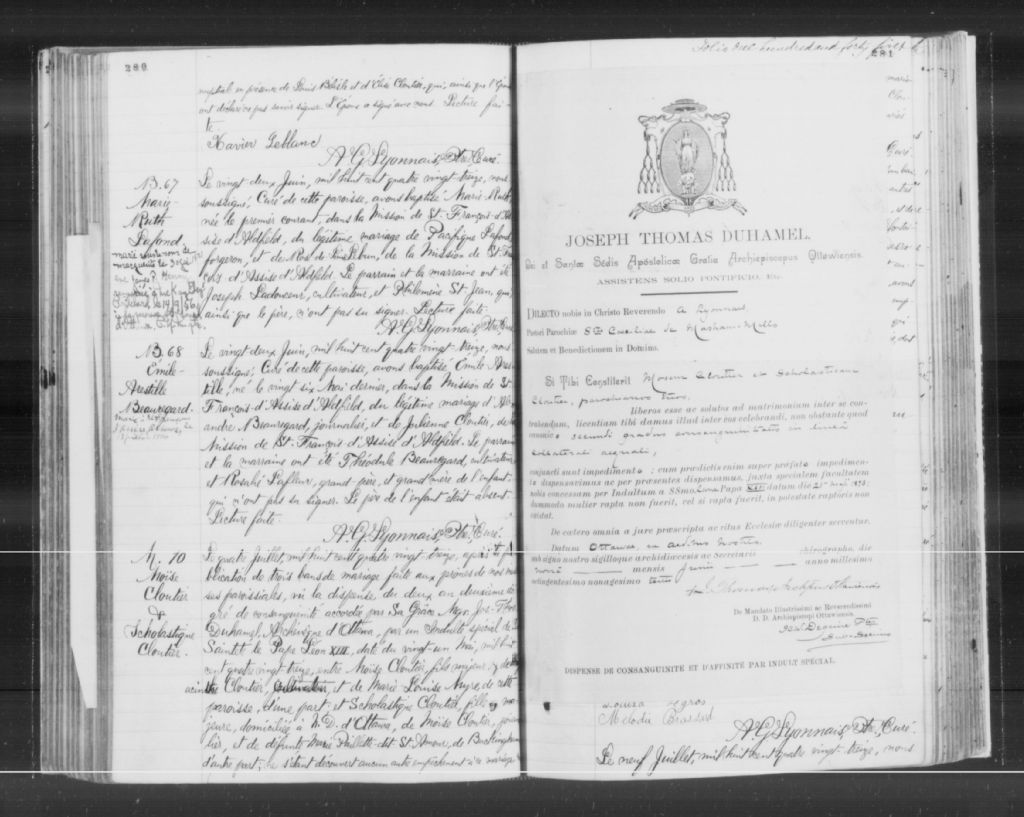 280
nuptiale en présence de Louis Bélisle et d'Elise Cloutier, qui, ainsi que l'Epouse
ont déclaré ne pas savoir signer. L'époux a signé avec nous. Lecture fai-
te
Xavier Leblanc
A. G. Lyonnais, Ptre, Curé.
B. 67
Marie
Ruth
Lafond.
Le vingt deux Juin, mil huit cent quatre vingt-treize, nous
soussigné, Curé de cette paroisse, avons baptisé Marie-Ruth,
née le premier courant, dans la Mission de St. François-d'As
sise d'Aldfield, du légitime mariage de Pacifique Lafond,
forgeron, et de Rose de Lima Lebrun, de la Mission de St. Fran
çois d'Assise d'Aldfield. Le parrain et la marraine ont été
Joseph Ladouceur, cultivateur, et Philomène St. Jean, qui,
ainsi que le père, n'ont pas su signer. Lecture faite.
A. G. Lyonnais, Ptre, Curé
B. 68
Emile-
Arestille
Beauregard.
Le vingt deux Juin, mil huit cent quatre vingt-treize, nous
soussigné, Curé de cette paroisse, avons baptisé Emile Ares
tille, né le vingt six Mai dernier, dans la Mission de St.
François-d'Assise d'Aldfield, du légitime mariage d'Alex
andre Beauregard, journalier, et de Julienne Cloutier, de la
Mission de St. François d'Assise d'Aldfield. Le parrain
et la marraine ont été Théodule Beauregard, cultivateur
et Rosalie Lafleur, grand-père, et grand mère de l'enfant
qui n'ont pas su signer. Le père de l'enfant était absent.
Lecture faite.
A. G. Lyonnais, Ptre, Curé.
M. 70
Moïse
Cloutier
&
Scholastique
Cloutier.
Le quatre Juillet, mil huit cent quatre vingt treize, après la pu
blication de trois bans de mariage faite aux prônes de nos mes
ses paroissiales, vu la dispense du deux au deuxième de
gré de consanguinité accordée par Sa Grâce Mgr. Jos. Thos
Duhamel, Archevêque d'Ottawa, par un Indult spécial de Sa
Sainteté le Pape Léon XIII, daté du vingt-un Mai, mil huit
cent quatre vingt treize, entre Moïse Cloutier, fils majeur, de
Cloutier, cultivateur, et de Marie Louise Nugro, de cette
paroisse, d'une part; et Scholastique Cloutier, fille ma
jeure, domiciliée à N.D. d'Ottawa, de Moïse Cloutier, journa
lier, et de défunte Marie Paillette-dit St. Amour, de Buckingham
d'autre part; ne s'étant découvert aucun autre empêchement à ce mariage
Folio one hundred and forty
281
JOSEPH THOMAS DUHAMEL.
Dei et Sanctæ Sedis Apostolicæ Gratia Archiepiscopus Ottawiensis.
ASSISTENS SOLIO PONTIFICIO, Etc.
DILECTO nobis in Christo Reverendo A Lyonnais
Pastori Parochiæ Stæ Ceciliae de Masham-Mills
Salutem et Benedictionem in Domino.
Si Tibi Constiterit Mosem Cloutier et Scholasticam
Cloutier, parochianos tuos,
liberos esse ac solutos ad matrimonium inter se con-
trahendum, licentiam tibi damus illud inter eos celebrandi, non obstante quod
secundi gradus consanguinitatis in linea
collaterali aequali,
conjuncti sunt impedimento ; cum prædictis enim super præfato impedimen-
to dispensavimus ac per præsentes dispensamus, juxta specialem facultatem
nobis concessam per Indultum a SSmo Leone Papa XIII datum die 21a Maji 1893;
dummodo mulier rapta non fuerit, vel si rapta fuerit, in potestate raptoris non
existat.
De cætero omnia a jure præscripta ac ritus Ecclesiæ diligenter serventur.
Datum Ottawa, ex aedibus nostris
sub signo nostro sigilloque archidiœcesis ac Secretarii chirographo, die
nona mensis Junii anno millesimo
octingentesimo nonagesimo tertio
De Mandato Illustrissimi ac Reverendissimi
D. D. Archiepiscopi Ottawiensis.
DISPENSE DE CONSANGUINITE ET D'AFFINITÉ PAR INDULT SPÉCIAL.
Louisa Legros
Mélodie Brassard
A. G. Lyonnais, Ptre, Curé.
Le neuf Juillet, mil huit cent quatre vingt-treize, nous